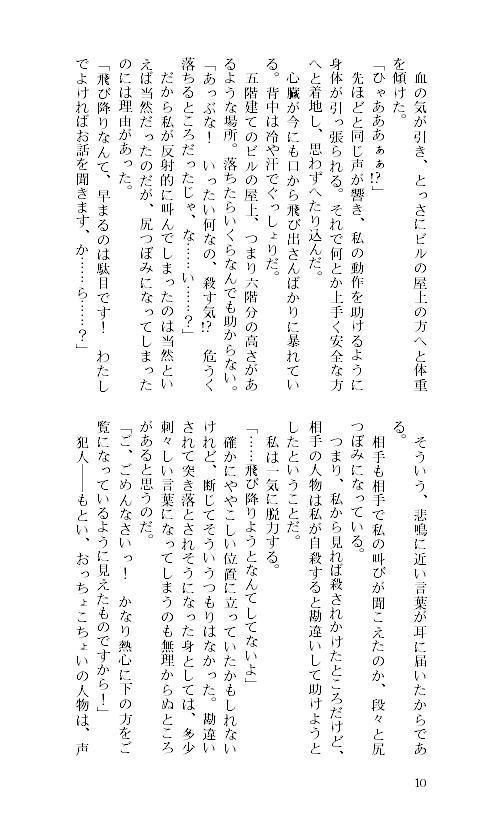 血の気が引き、とっさにビルの屋上の方へと体重
を傾けた。
「ひゃあああぁぁ!?」
　先ほどと同じ声が響き、私の動作を助けるように
身体が引っ張られる。それで何とか上手く安全な方
へと着地し、思わずへたり込んだ。
　心臓が今にも口から飛び出さんばかりに暴れてい
る。背中は冷や汗でぐっしょりだ。
　五階建てのビルの屋上、つまり六階分の高さがあ
るような場所。落ちたらいくらなんでも助からない。
「あっぶな！　いったい何なの、殺す気!?　危うく
落ちるところだったじゃ、な……い……？」
　だから私が反射的に叫んでしまったのは当然とい
えば当然だったのだが、尻つぼみになってしまった
のには理由があった。
「飛び降りなんて、早まるのは駄目です！　わたし
でよければお話を聞きます、か……ら……？」
　そういう、悲鳴に近い言葉が耳に届いたからであ
る。
　相手も相手で私の叫びが聞こえたのか、段々と尻
つぼみになっている。
　つまり、私から見れば殺されかけたところだけど、
相手の人物は私が自殺すると勘違いして助けようと
したということだ。
　私は一気に脱力する。
「……飛び降りようとなんてしてないよ」
　確かにややこしい位置に立っていたかもしれない
けれど、断じてそういうつもりはなかった。勘違い
されて突き落とされそうになった身としては、多少
刺々しい言葉になってしまうのも無理からぬところ
があると思うのだ。
「ご、ごめんなさいっ！　かなり熱心に下の方をご
覧になっているように見えたものですから！」
　犯人――もとい、おっちょこちょいの人物は、声
10